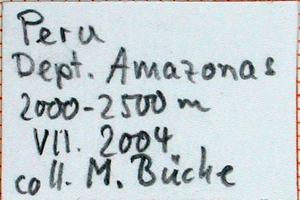 Peru
Dept. Amazonas
2000-2500 m
VII. 2004
coll. M. Büche